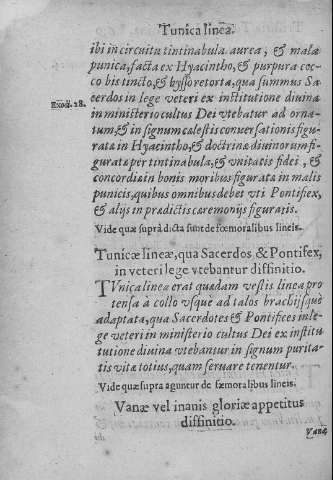 Tunica linea.
ibi in circuitu tintinabula aurea, & mala
punica, facta ex Hyacintho, & purpura coc-
co bis tincto, & bysso retorta, qua summus Sa
Exod. 28. cerdos in lege veteri ex institutione diuina
in ministerio cultus Dei vtebatur ad orna-
tum, & in signum cælestis conuersationis figu-
rata in Hyacintho, & doctrinæ diuinorum fi-
gurata per tintinabula, & vnitatis fidei, &
concordia in bonis moribus figurata in malis
punicis, quibus omnibus debet vti Pontifex,
& alijs in prædictis cæremonijs figuratis.
Vide quæ suprà dicta sunt de fœmoralibus lineis.
Tunicæ lineæ, qua Sacerdos, & Pontifex,
in veteri lege vtebantur diffinitio.
TVnica linea erat quædam vestis linea pro
tensa à collo vsque ad talos brachijsque
adaptata, qua Sacerdotes & Pontifices in le-
ge veteri in ministerio cultus Dei ex institu
tutione diuina vtebantur in signum purita-
tis vitæ totius, quam seruare tenentur.
Vide quæ supra aguntur de fœmoralibus lineis.
Vanæ vel inanis gloriæ appetitus
diffinitio.